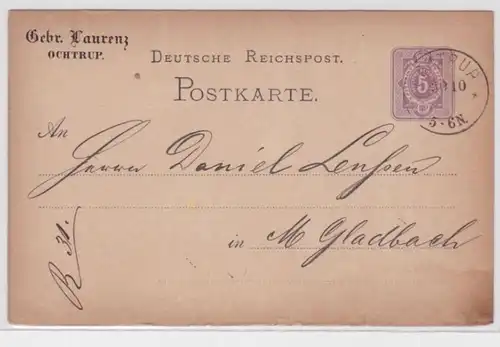 Gebr. Laurenz
OCHTRUP.
DEUTSCHE REICHSPOST.
POSTKARTE.
5
10
5-6N.
An
Herrn Daniel
in M Gladbach
R 31.